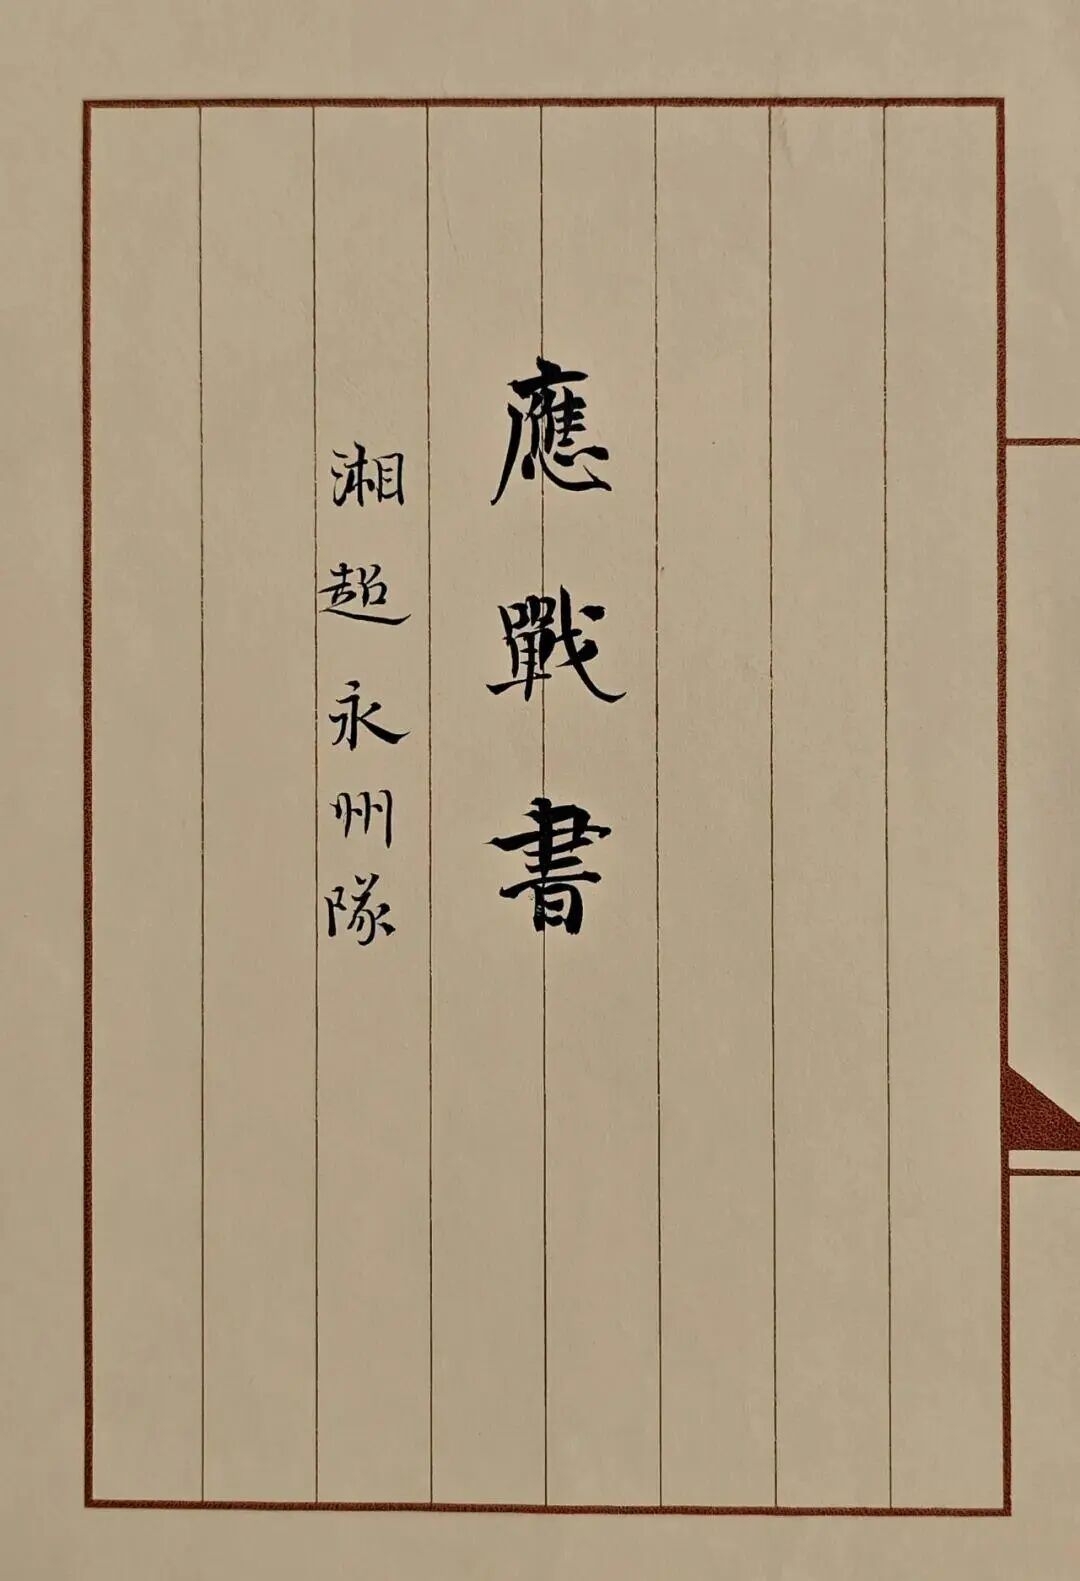 應戰書
湘超永州隊